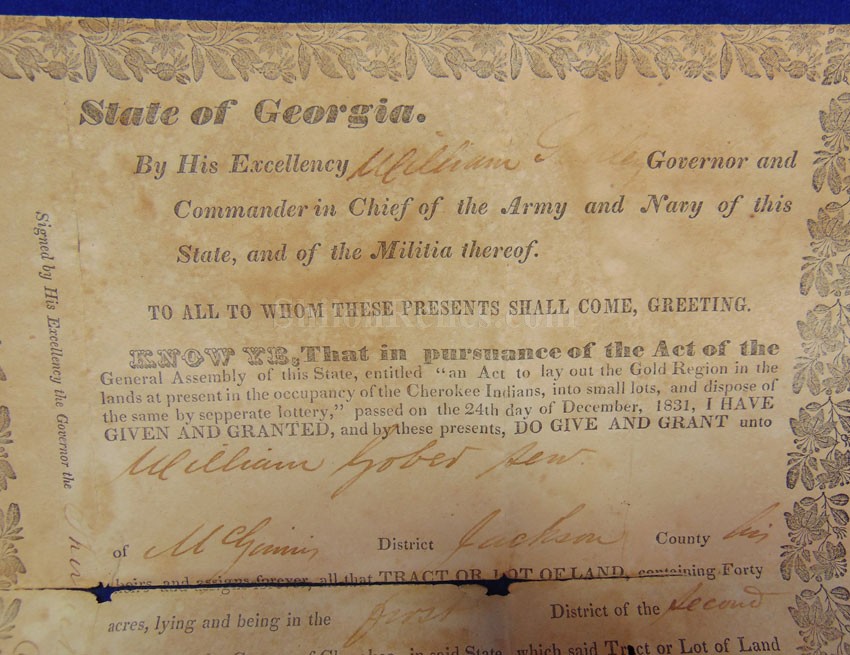 State of Georgia.
By His Excellency William Governor and
Commander in Chief of the Army and Navy of this
State, and of the Militia thereof.
TO ALL TO WHOM THESE PRESENTS SHALL COME, GREETING.
KNOW YE, That in pursuance of the Act of the
General Assembly of this State, entitled "an Act to lay out the Gold Region in the
lands at present in the occupancy of the Cherokee Indians, into small lots, and dispose of
the same by sepperate lottery," passed on the 24th day of December, 1831, I HAVE
GIVEN AND GRANTED, and by these presents, DO GIVE AND GRANT unto
William Gober sen.
of McGinnis District Jackson County his
heirs and assigns forever, all that TRACT OR LOT OF LAND, containing Forty
acres, lying and being in the first District of the second
in said State, which said Tract or Lot of Land
Signed by His Excellency the Governor the